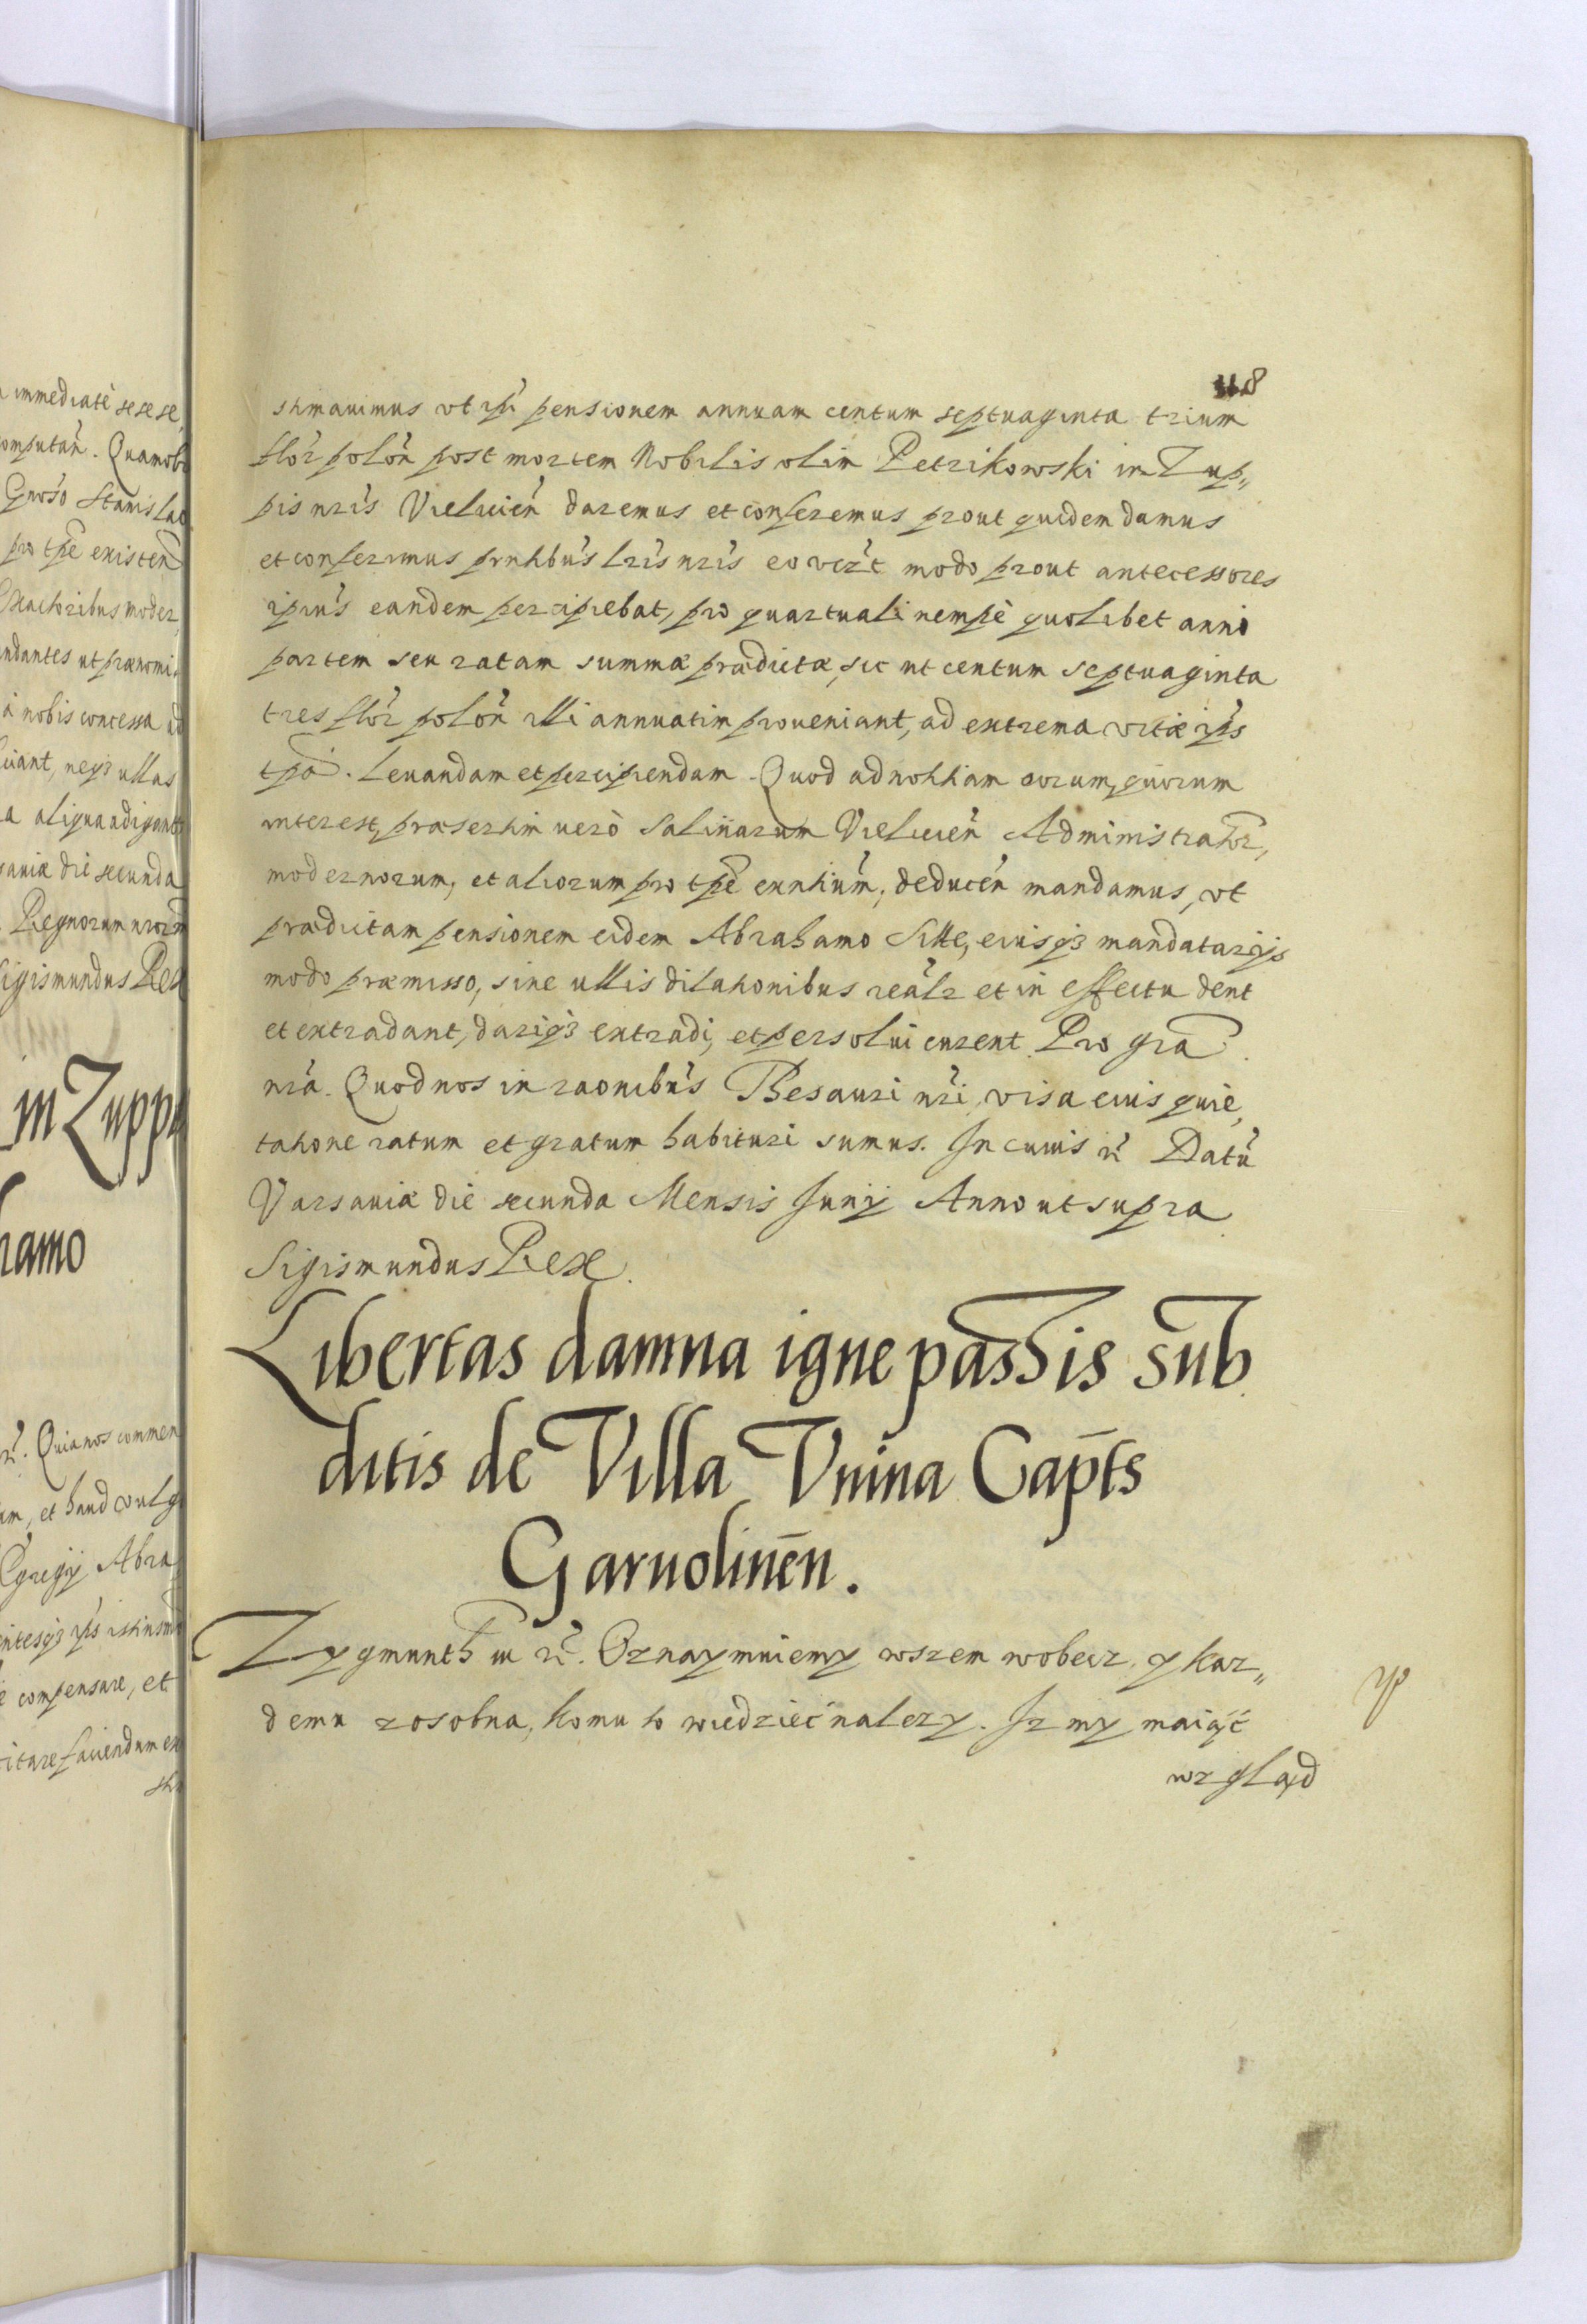 immediatè sese,
computan̄. Quamob
Gnõso Stanislao
pro tp̃e existen̄
Exactoribus moder,
ndantes ut prænomi,
à nobis concessa ad
ciant, neq3 ullas
a aliqua adigant
sauiæ die secunda
Regnorum nrõrm
Sigismundus Rex
in Zuppi
hamo
rc̃. Quia nos commen
um, et haud vulg
Egregÿ Abra
compensare, et
itare faciendum ex
sti
118
stimauimus vt ip̃i pensionem annuam centum septuaginta trium
flor̃ polon̄ post mortem Nobilis olim Petrikowski in Zup„
pis nrĩs Vieliciēn daremus et conferemus prout quidem damus
et conferimus pr̃ntibus lrĩs nrĩs eo vert̃ modo prout antecessores
ipius̃ eandem percipiebat, pro quartuali nempè quolibet anni
partem seu ratam summæ prædictæ, sic ut centum septuaginta
tres flor̃ polon̄ illi annuatim proueniant, ad extrema vitæ ip̃s
tp̃a. Leuandam et percipiendam. Quod ad notitiam eorum, quorum
interest, præsertim uerò Salinarum Vieliciēn Administrator̃,
modernorum, et aliorum pro tp̃e exntiũm, deducēn mandamus, vt
prædictam pensionem eidem Abrahamo Sitte, eiusq3 mandatarijs
modo præmisso, sine ullis dilationibus real̃r et in effectu dent
et extradant, dariq3 extradi, et persolui curent. Pro gra͂
nr̃a. Quod nos in raonibũs Thesauri nr̃i, visa eius quie,
tatione ratum et gratum habituri sumus. In cuius rc̃ Datũ
Varsauiæ die secunda Mensis Junÿ Anno ut supra
Sigismundus Rex.
Libertas damna igne passis sub
ditis de Villa Vnina Cap̄ts
Garuolinēn.
Zygmunth iii rc̃. Oznaymuiemy wszem wobecz, y kaz„
demu zosobna, komu to wiedzieć nalezy. Iz my maiąć
wzgląd